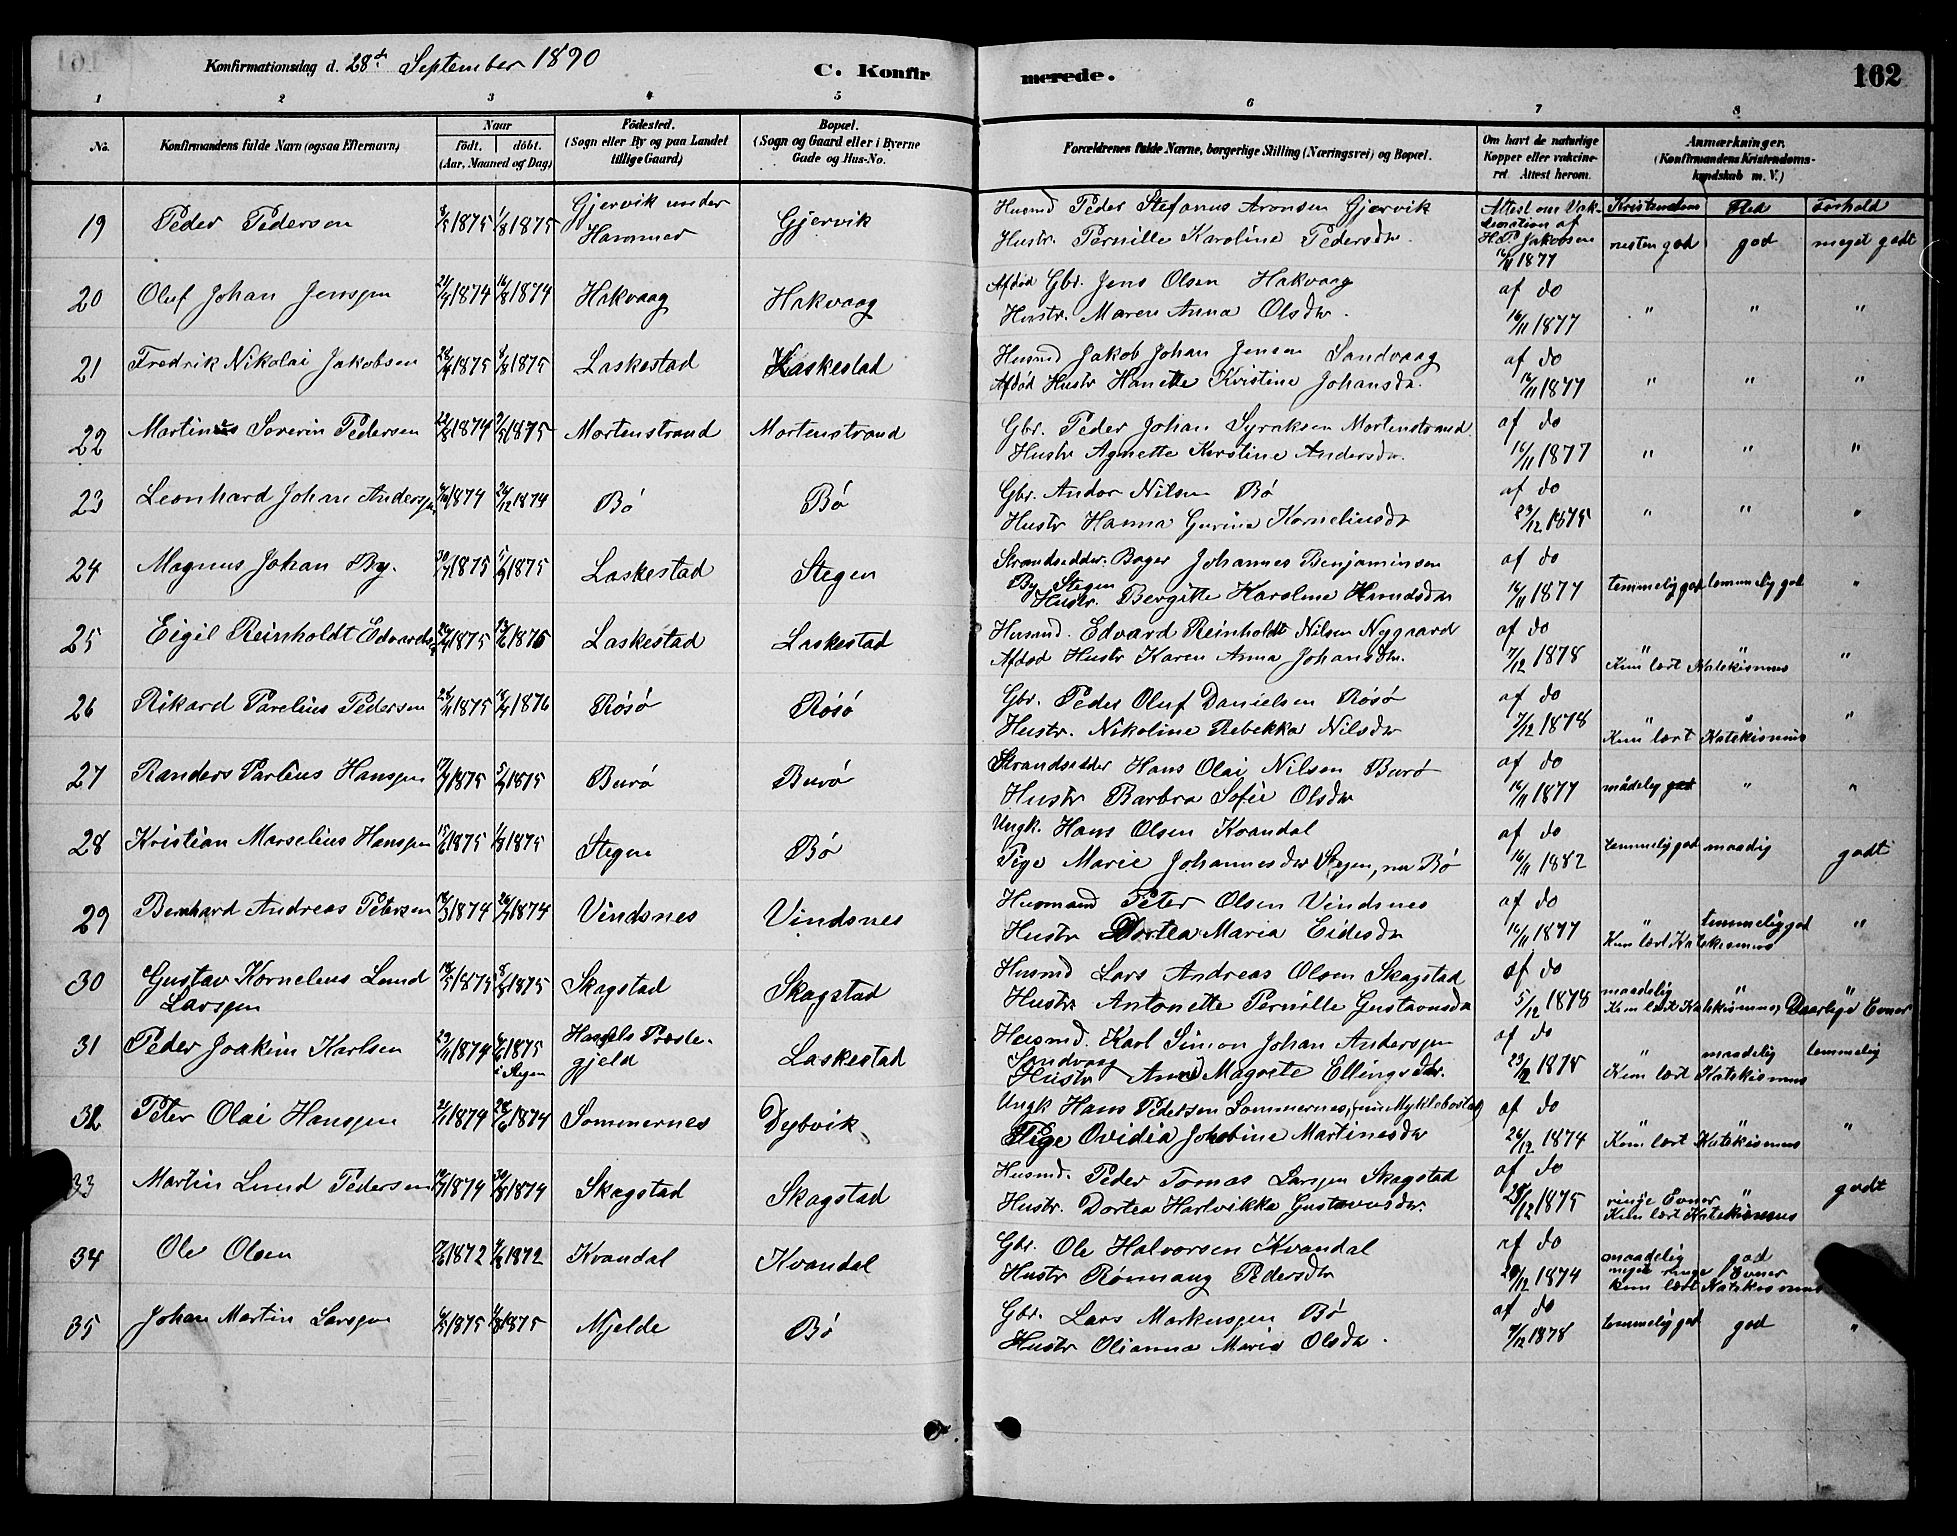 Konfirmationsdag d. 28d September 1890
C. Konfirmerede.
162
1 2 3 4 5 6 7 8
No. Konfirmandens fulde Navn (ogsaa Efternavn) Naar født. døbt. (Aar, Maaned og Dag) Födested. (Sogn eller By og paa Landet tillige Gaard) Bopæl. (Sogn og Gaard eller i Byerne Gade og Hus-No. Forældrenes fulde Navne, borgerlige Stilling (Næringsvei) og Bopæl. Om havt de naturlige Kopper eller vakcineret. Attest herom. Anmærkninger. (Konfirmandens Kristendomskundskab m. V.)
19 Peder Pedersen 1875 1/8 1875 Gjervik under Hammer Gjervik Husmd Peder Stefanus Aronsen Gjervik Attest om Vakcination af H.P. Jakobsen 16/11 1877 Kristendom Flid Forhold
Hustr. Pernille Karoline Pedersdtr. nesten god god meget godt
20 Oluf Johan Jenssen 1874 16/8 1874 Hakvaag Hakvaag Afdød Gbr. Jens Olsen Hakvaag af do
Hustr. Maren Anna Olsdtr. 16/11 1877 " " "
21 Fredrik Nikolai Jakobsen 1875 1875 Laskestad Laskestad Husmd Jakob Johan Jensen Sandvaag af do
Afdød Hustr Hanette Kristine Johansdtr. 16/11 1877 " " "
22 Martinus Severin Pedersen 1874 1875 Mortenstrand Mortenstrand Gbr. Peder Johan Syraksen Mortenstrand af do
Hustr Agnette Kerstine Andersdtr. 16/11 1877 " " "
23 Leonhard Johan Anderssen 1874 26/12 1874 Bø Bø Gbr. Andor Nilsen Bø af do
Hustr Hanna Gurine Korneliusdtr 23/12 1875 " " "
24 Magnus Johan By. 1875 1875 Laskestad Stegen Strandsidder. Bager Johannes Benjaminsen af do
By Stegen
Hustr. Bergitte Karoline Hundsdtr 16/11 1877 temmelig god temmelig god "
25 Eigil Reinholdt Edvardsen 1875 1875 Laskestad Laskestad Husmd. Edvard Reinholdt Nilsen Nygaard af do
Afdød Hustr Karen Anna Johansdtr. 7/12 1878 " " "
Kun lært Katekismus
26 Rikard Parelius Pedersen 1875 1876 Røsø Røsø Gbr. Peder Oluf Danielsen Røsø af do
Hustr. Nikoline Rebekka Nilsdtr 7/12 1878 " " "
Kun lært Katekismus
27 Randers Parlius Hanssen 1875 1875 Burø Burø Strandsidder Hans Olai Nilsen Burø af do
Hustr Barbra Sofie Olsdtr 16/11 1877 mådelig god " "
28 Kristian Marselius Hanssen 1875 1875 Stegen Bø Ungk. Hans Olsen Kvandal af do
Pige Marie Johannesdtr Stegen, nu Bø 16/11 1882 temmelig god maadlig godt
29 Bernhard Andreas Petersen 1874 1874 Vindsnes Vindsnes Husmand Peter Olsen Vindsnes af do
Hustr Dortea Maria Eidesdtr 16/11 1877 " temmelig god "
Kun lært Katekismus
30 Gustav Kornelius Lund Larssen 1875 1875 Skagstad Skagstad Husmd Lars Andreas Olsen Skagstad af do
Hustr. Antonette Pernille Gustavusdtr 5/12 1878 maadelig " "
Kun lært Katekismus, Daarlige Evner
31 Peder Joakim Karlsen 1874 1875 i Stegen Hassels Prestegjeld Laskestad Husmd. Karl Simon Johan Anderssen Sandvaag af do
Hustr Anne Magrete Ellingsdtr. 1878 " maadelig temmelig
Kun lært Katekismus
32 Peter Olai Hanssen 1874 1874 Sommernes Dybvik Ungk Hans Pedersen Sommernes, (nu Myklebostad) af do
Pige Ovidia Jakobine Martinesdtr 26/12 1874 " " "
Kun lært Katekismus
33 Martin Lund Pedersen 1874 1874 Skagstad Skagstad Husmd. Peder Tomas Larssen Skagstad af do
Hustr. Dortea Hartvikka Gustavusdtr. 1875 ringe Evner " godt
Kun lært Katekismus
34 Ole Olsen 1872 1872 Kvandal Kvandal Gbr. Ole Halvorsen Kvandal af do
Hustr Rønnaug Pedersdtr 1874 maadelig god
meget ringe Evner
kun lært Katekismus
35 Johan Martin Larssen 1875 1875 Mjelde Bø Gbr. Lars Markussen Bø af do
Hustr Olianna Maria Olsdtr. 7/12 1878 temmelig god god "